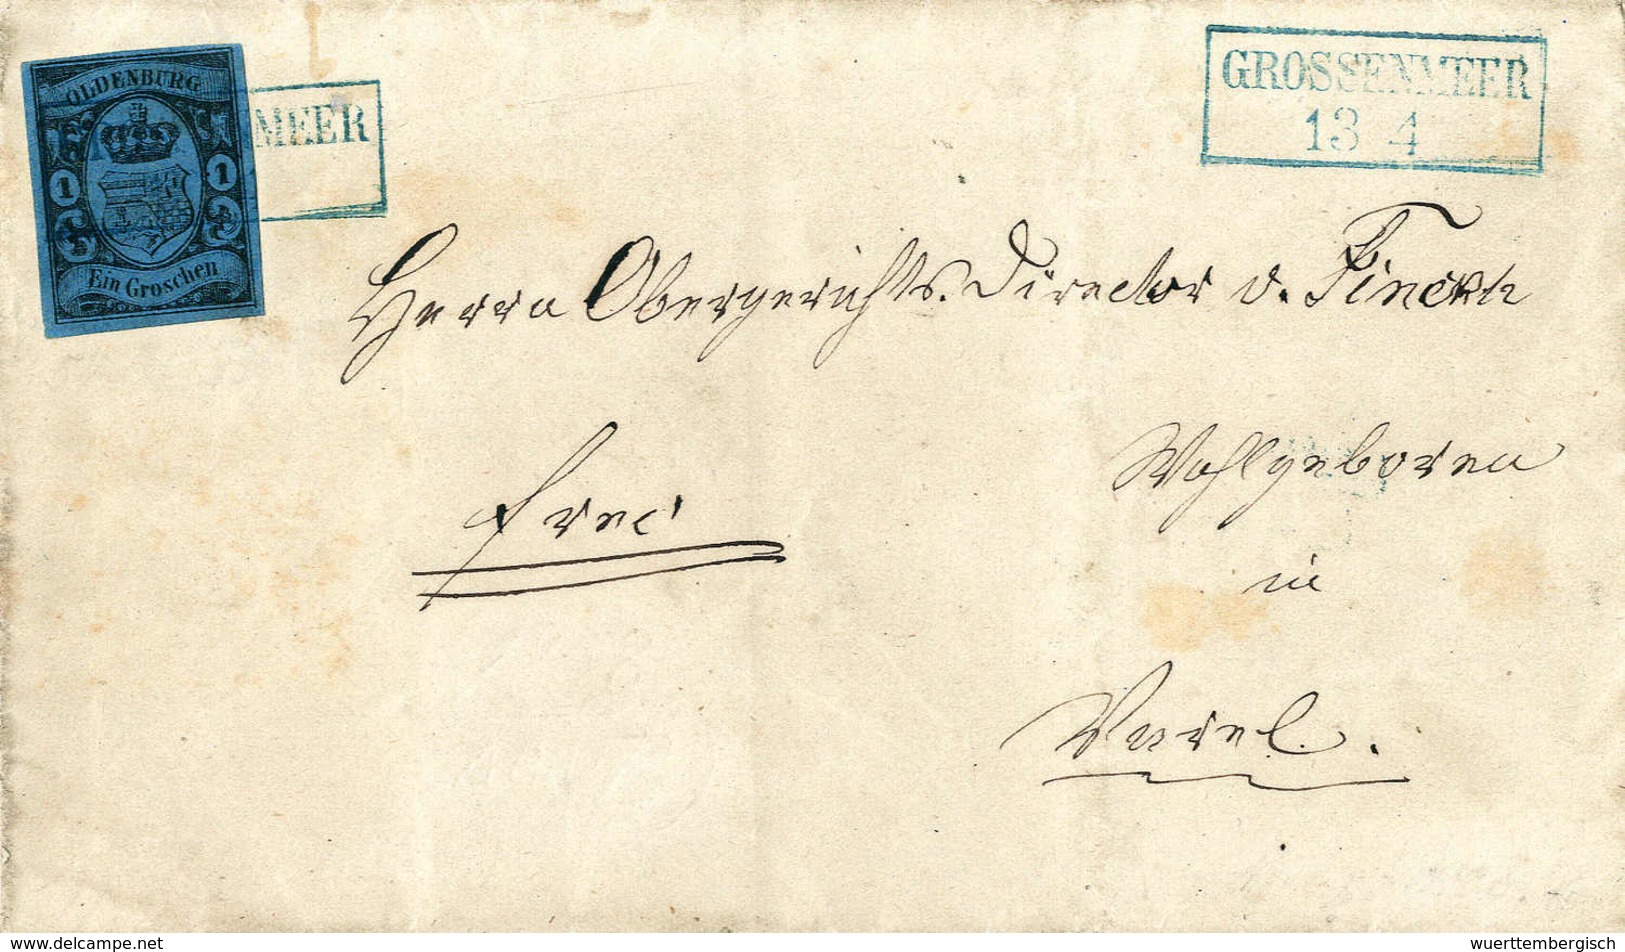 OLDENBURG
1 1
Ein Groschen
MEER
GROSSENMEER
13 4
Herrn Obergerichts-Director v. Finckh
Wohlgeboren
frei
in
Varel.
www.delcampe.net
wuerttembergisch